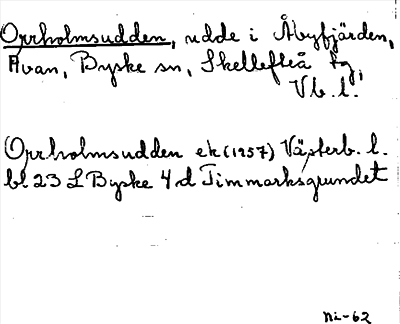 Orrholmsudden, udde i Åbyfjärden,
Avan, Byske sn, Skellefteå tg,
Vb. l.
Orrholmsudden ek (1957) Västerb. l.
bl 23 L Byske 4 d Timmarksgrundet
Ni-62